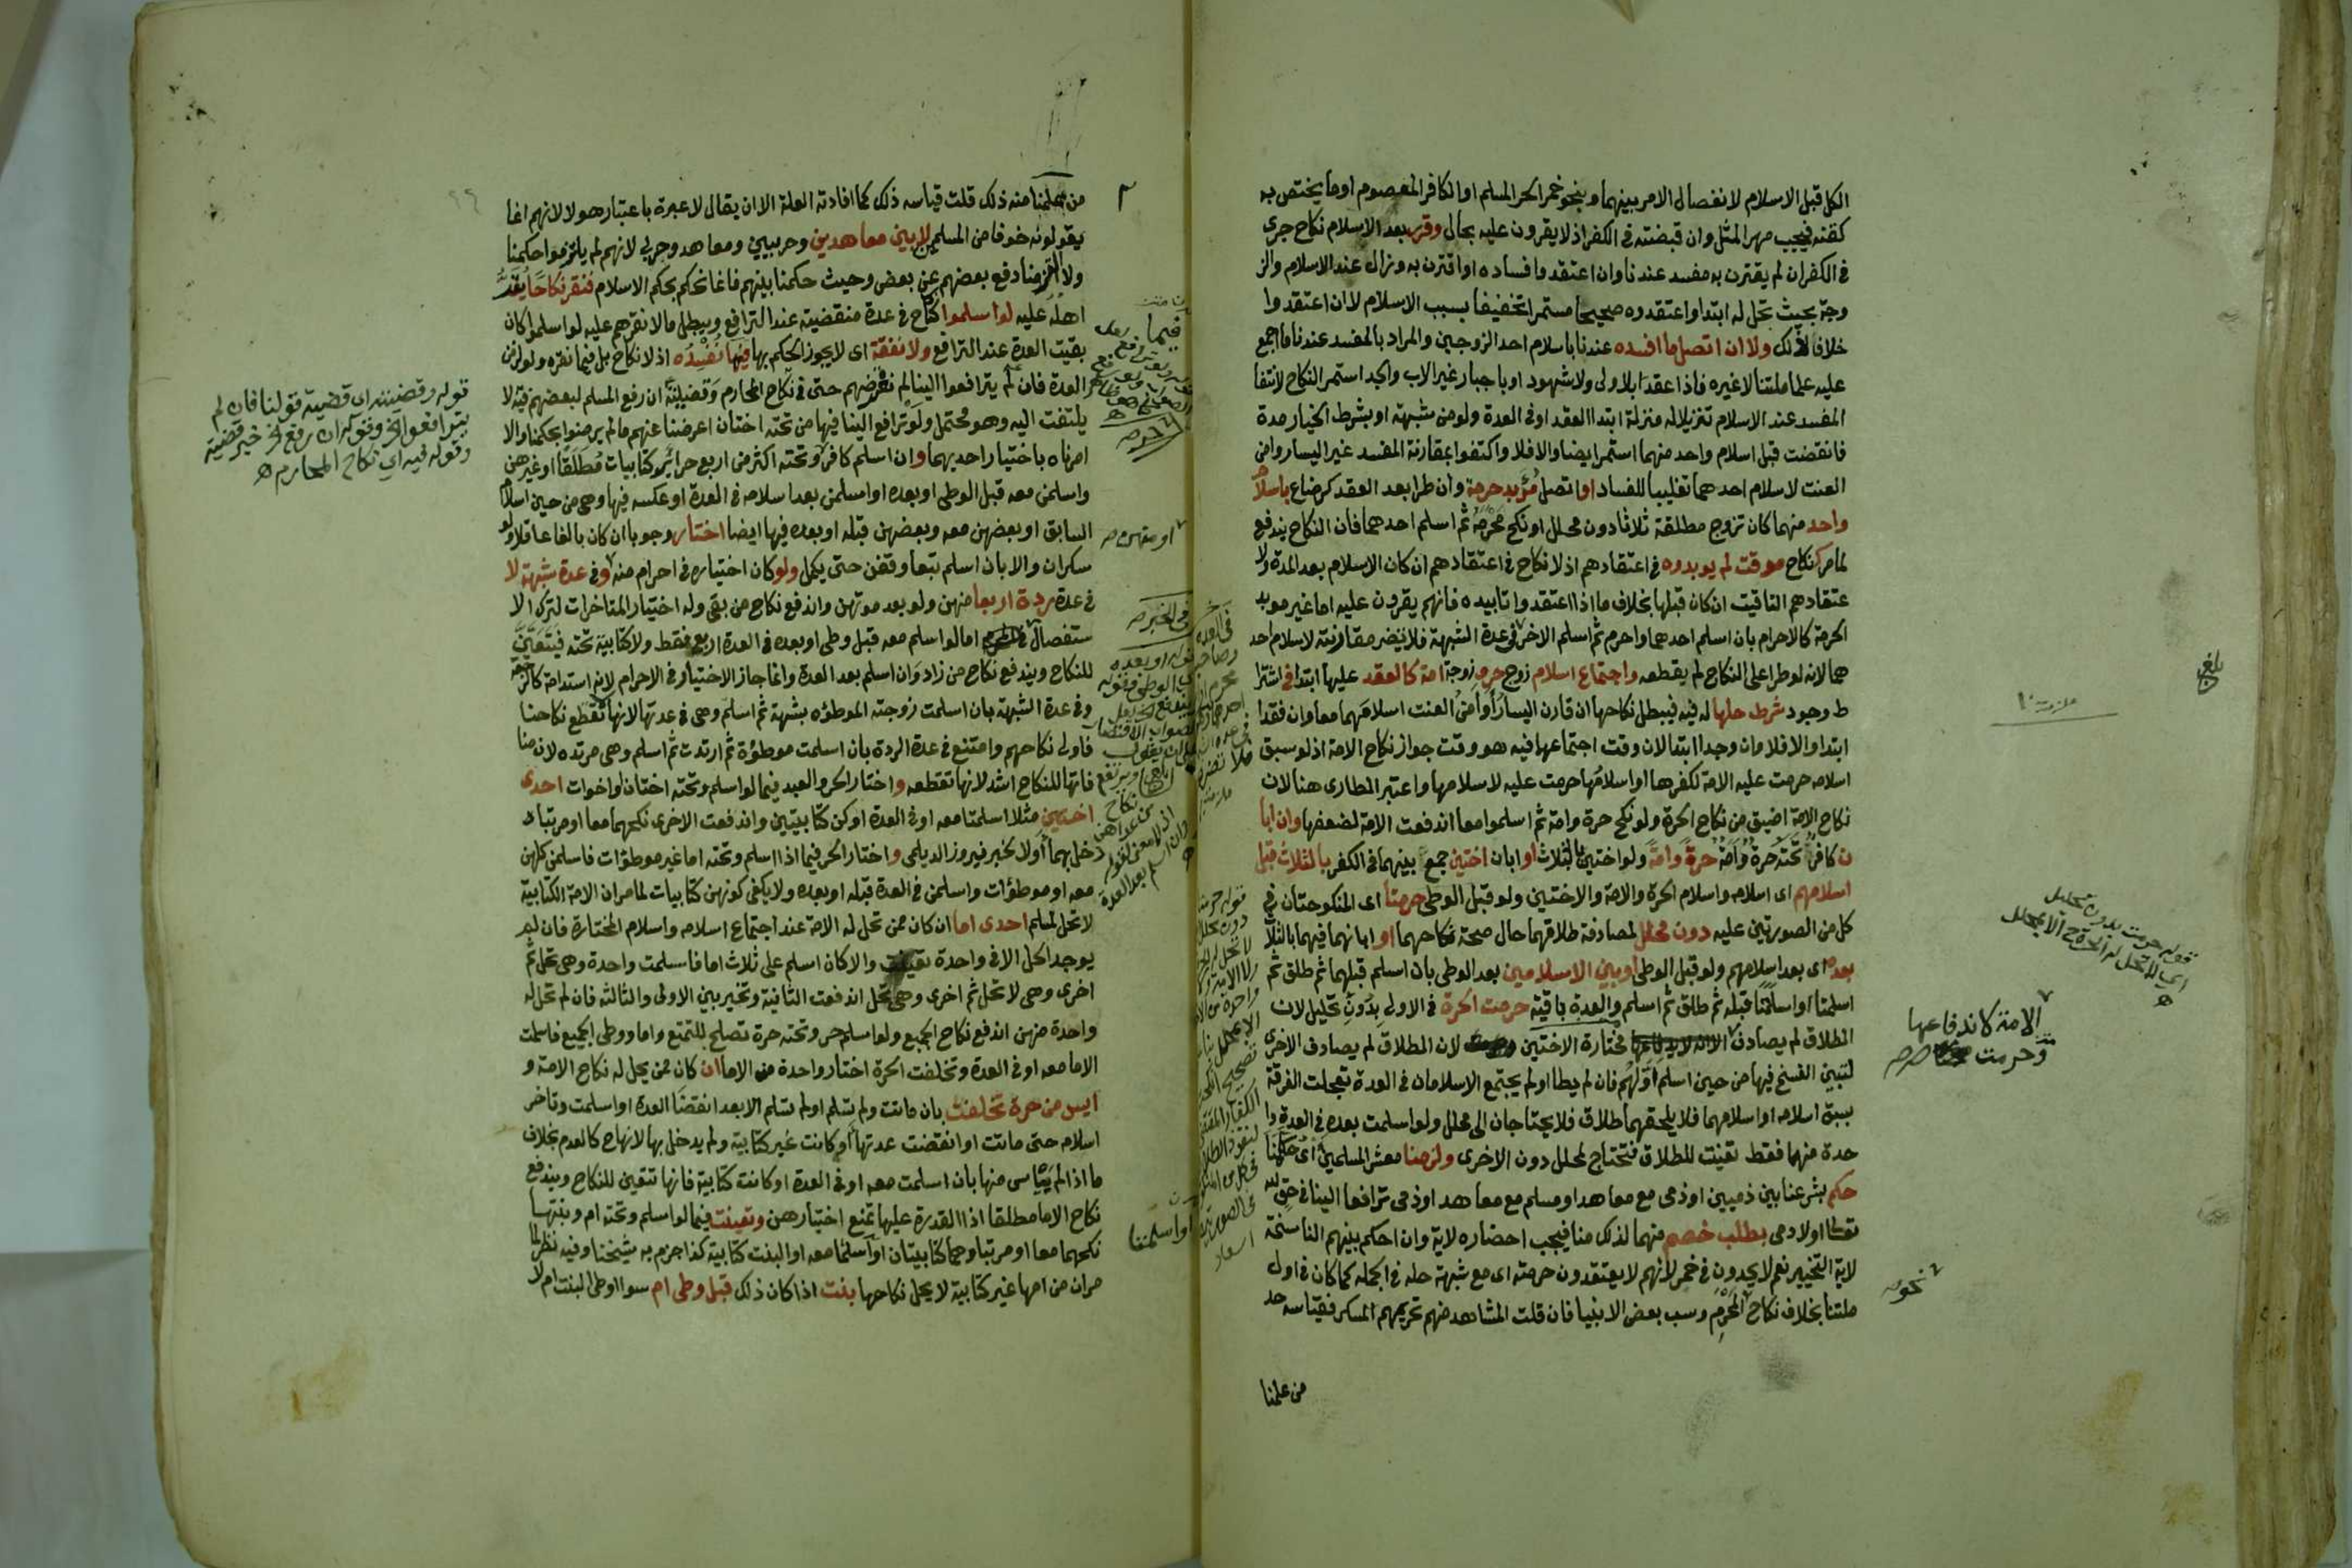 الكل قبل الاسلام لانفصال الامر بينهما وبنحو خمر الحر المسلم او الكافر المعصوم اوما يختص به
كقنه فيجب مهر المثل وان قبضته في الكفر اذ لا يقرون عليه بحال وقرر بعد الاسلام نكاح جرى
في الكفر ان لم يقترن به مفسد عندنا وان اعتقدوا فساده او اقترن به وزال عند الاسلام والز
وجة بحيث تحل له ابتدا واعتقدوه صحيحا مستمرا تخفيفا بسبب الاسلام لا ان اعتقدوا
خلاف ذلك ولا ان اتصل ما افسده عندنا باسلام احد الزوجين والمراد بالمفسد عندنا ما اجمع
عليه علما ملتنا لا غيره فاذا عقد ابلا ولى ولا شهود او باجبار غير الاب والجد استمر النكاح لانتفا
المفسد عند الاسلام تنزيلا له منزلة ابتدا العقد او في العدة ولو من شبهة او بشرط الخيار مدة
فانقضت قبل اسلام واحد منهما استمر ايضا والا فلا واكتفوا بمقارنة المفسد غير اليسار وامن
العنت لاسلام احدهما تغليبا للفساد او اتصل مؤبد حرمة وان طرا بعد العقد كرضاع باسلام
واحد منهما كان تزوج مطلقة ثلاثا دون محلل او نكح محرمه ثم اسلم احدهما فان النكاح يندفع
لما مر كنكاح موقت لم يوبدوه في اعتقادهم اذ لا نكاح في اعتقادهم ان كان الاسلام بعد المدة ولا
عتقادهم التاقيت ان كان قبلها بخلاف ما اذا اعتقدوا تابيده فانهم يقرون عليه اما غير موبد
الحرمة كالاحرام بان اسلم احدهما واحرم ثم اسلم الاخر في عدة الشبهة فلا يضر مقارنته لاسلام احد
هما لانه لو طرا على النكاح لم يقطعه واجتماع اسلام زوج حر وزوجة امة كالعقد عليها ابتدا في اشترا
ط وجود شرط حلها له فيه فيبطل نكاحها ان قارن اليسار او امن العنت اسلامهما معا وان فقدا
ابتدا والا فلا وان وجدا ابتدا لان وقت اجتماعها فيه هو وقت جواز نكاح الامة اذ لو سبق
اسلامه حرمت عليه الامة لكفرها او اسلامها حرمت عليه لاسلامها واعتبر الطارى هنا لان
نكاح الامة اضيق من نكاح الحرة ولو نكح حرة وامة ثم اسلموا معا اندفعت الامة لضعفها وان ابا
ن كافر تحته حرة وامة حرة وامة ولو اختين بالثلاث او ابان اختين جمع بينهما في الكفر بالثلاث قبل
اسلامهم اى اسلامه واسلام الحرة والامة والاختين ولو قبل الوطى حرمتا اى المنكوحتان في
كل من الصورتين عليه دون محلل لمصادفة طلاقهما حال صحة نكاحهما او ابانهما فيهما بالثلاث
بعده اى بعد اسلامهم ولو قبل الوطى او بين الاسلامين بعد الوطى بان اسلم قبلهما ثم طلق ثم
اسلمتا او اسلمتا قبله ثم طلق ثم اسلم والعدة باقية حرمت الحرة في الاولى بدون تحليل لان
الطلاق لم يصادف مختارة الاختين لان الطلاق لم يصادف الاخرى
لتبين الفسخ فيها من حين اسلم اولهم فان لم يطا او لم يجتمع الاسلامان في العدة تعجلت الفرقة
بسبق اسلامه او اسلامهما فلا يلحقهما طلاق فلا يحتاجان الى محلل ولو اسلمت بعده في العدة وا
حدة منهما فقط تعينت للطلاق فتحتاج لمحلل دون الاخرى ولزمنا معشر المسلمين اى حكمنا
حكم بشرعنا بين ذميين او ذمى مع معاهد او مسلم مع معاهد او ذمى ترافعا الينا في حق لله
تعالى او لادمى بطلب خصم منهما لذلك منا فيجب احضاره لاية وان احكم بينهم الناسخة
لاية التخيير نعم لا يحدون في خمر لانهم لا يعتقدون حرمته اى مع شبهة حله في الجملة كما كان في اول
ملتنا بخلاف نكاح المحرم وسب بعض الانبيا فان قلت المشاهد منهم تحريمهم المسكر فقياسه حد
من علمنا
بلغ
قوله حرمت بدون تحليل
اى لا تحل له الحرة الا بمحلل
الامة لاندفاعها
وحرمت
نحو صح
من علمنا منه ذلك قلت قياسه ذلك كما افادته العلة الا ان يقال لا عبرة باعتبار هولا لانهم انما
يقولونه خوفا من المسلمين لا بين معاهدين وحربيين ومعاهد وحربى لانهم لم يلتزموا حكمنا
ولا التزمنا دفع بعضهم عن بعض وحيث حكمنا بينهم فانما نحكم بحكم الاسلام فنقر نكاحا يقر
اهله عليه لو اسلموا كنكاح في عدة منقضية عند الترافع ويبطل ما لا نقرهم عليه لو اسلموا كان
بقيت العدة عند الترافع ولا نفقة اى لا يجوز الحكم بها فيما نفسده اذ لا نكاح بل فيما نقره ولو لزمن
العدة فان لم يترافعوا الينا لم نتعرضهم حتى في نكاح المحارم وقضيته ان رفع المسلم لبعضهم فيه لا
يلتفت اليه وهو محتمل ولو ترافع الينا فيها من تحته اختان اعرضنا عنهم ما لم يرضوا بحكمنا والا
امرناه باختيار احديهما وان اسلم كافر وتحته اكثر من اربع حراير كتابيات مطلقا او غيرهن
واسلمن معه قبل الوطى او بعده او اسلمن بعد اسلامه في العدة او عكسه فيها وهى من حين اسلام
السابق او بعضهن معه وبعضهن قبله او بعده فيها ايضا اختار وجوبا ان كان بالغا عاقلا ولو
سكران والا بان اسلم تبعا وقفن حتى يكمل ولو كان اختياره في احرام منه وفي عدة شبهة لا
في عدة ردة اربعا منهن ولو بعد موتهن واندفع نكاح من بقى وله اختيار المتاخرات لترك الا
ستفصال في اما لو اسلم معه قبل وطى او بعده في العدة اربع فقط ولا كتابية تحته فيتعين
للنكاح ويندفع نكاح من زاد وان اسلم بعد العدة وانما جاز الاختيار في الاحرام لانه استدامة كالرجعة
وفي عدة الشبهة بان اسلمت زوجته الموطؤه بشبهة ثم اسلم وهى في عدتها لانها لا تقطع نكاحنا
فاولى نكاحهم وامتنع في عدة الردة بان اسلمت موطؤة ثم ارتدت ثم اسلم وهى مرتده لان منا
فاتها للنكاح اشد لانها تقطعه واختار الحر والعبد فيما لو اسلم وتحته اختان او اخوات احدى
اختين مثلا اسلمتا معه او في العدة او كن كتابيتين واندفعت الاخرى نكحهما معا او مرتبا د
خل بهما اولا لخبر فيروز الديلمى واختار الحر فيما اذا اسلم وتحته اما غير موطؤات فاسلمن كلهن
معه او موطؤات واسلمن في العدة قبله او بعده ولا يكفى كونهن كتابيات لما مر ان الامة الكتابية
لا تحل لمسلم احدى اما ان كان ممن تحل له الامة عند اجتماع اسلامه واسلام المختارة فان لم
يوجد الحل الا في واحدة تعينت والا كان اسلم على ثلاث اما فاسلمت واحدة وهى تحل ثم
اخرى وهى لا تحل ثم اخرى وهى تحل اندفعت الثانية وتخير بين الاولى والثالثه فان لم تحل له
واحدة منهن اندفع نكاح الجميع ولو اسلم حر وتحته حرة تصلح للتمتع واما ووطى الجميع فاسلمت
الاما معه او في العدة وتخلفت الحرة اختار واحدة من الاما ان كان ممن يحل له نكاح الامة و
ايس من حرة تخلفت بان ماتت ولم تسلم او لم تسلم الا بعد انقضا العدة او اسلمت وتاخر
اسلامه حتى ماتت او انقضت عدتها او كانت غير كتابية ولم يدخل بها لانها ح كالعدم بخلاف
ما اذا لم يياس منها بان اسلمت معه او في العدة او كانت كتابية فانها تتعين للنكاح ويندفع
نكاح الاما مطلقا اذ القدرة عليها تمنع اختيارهن وتعينت فيما لو اسلم وتحته ام وبنتها
نكحهما معا او مرتبا وهما كتابيتان او اسلمتا معه او البنت كتابية كذا جزم به شيخنا وفيه نظر لما
مر ان من امها غير كتابية لا يحل نكاحها بنت اذا كان ذلك قبل وطى ام سوا اوطى البنت ام لا
قوله وقضيته اى قضية قولنا فان لم
يترافعوا الخ وقوله ان رفع الخ خبر قضية
وقوله فيه اى نكاح المحارم ه
فيما
او اسلمتا